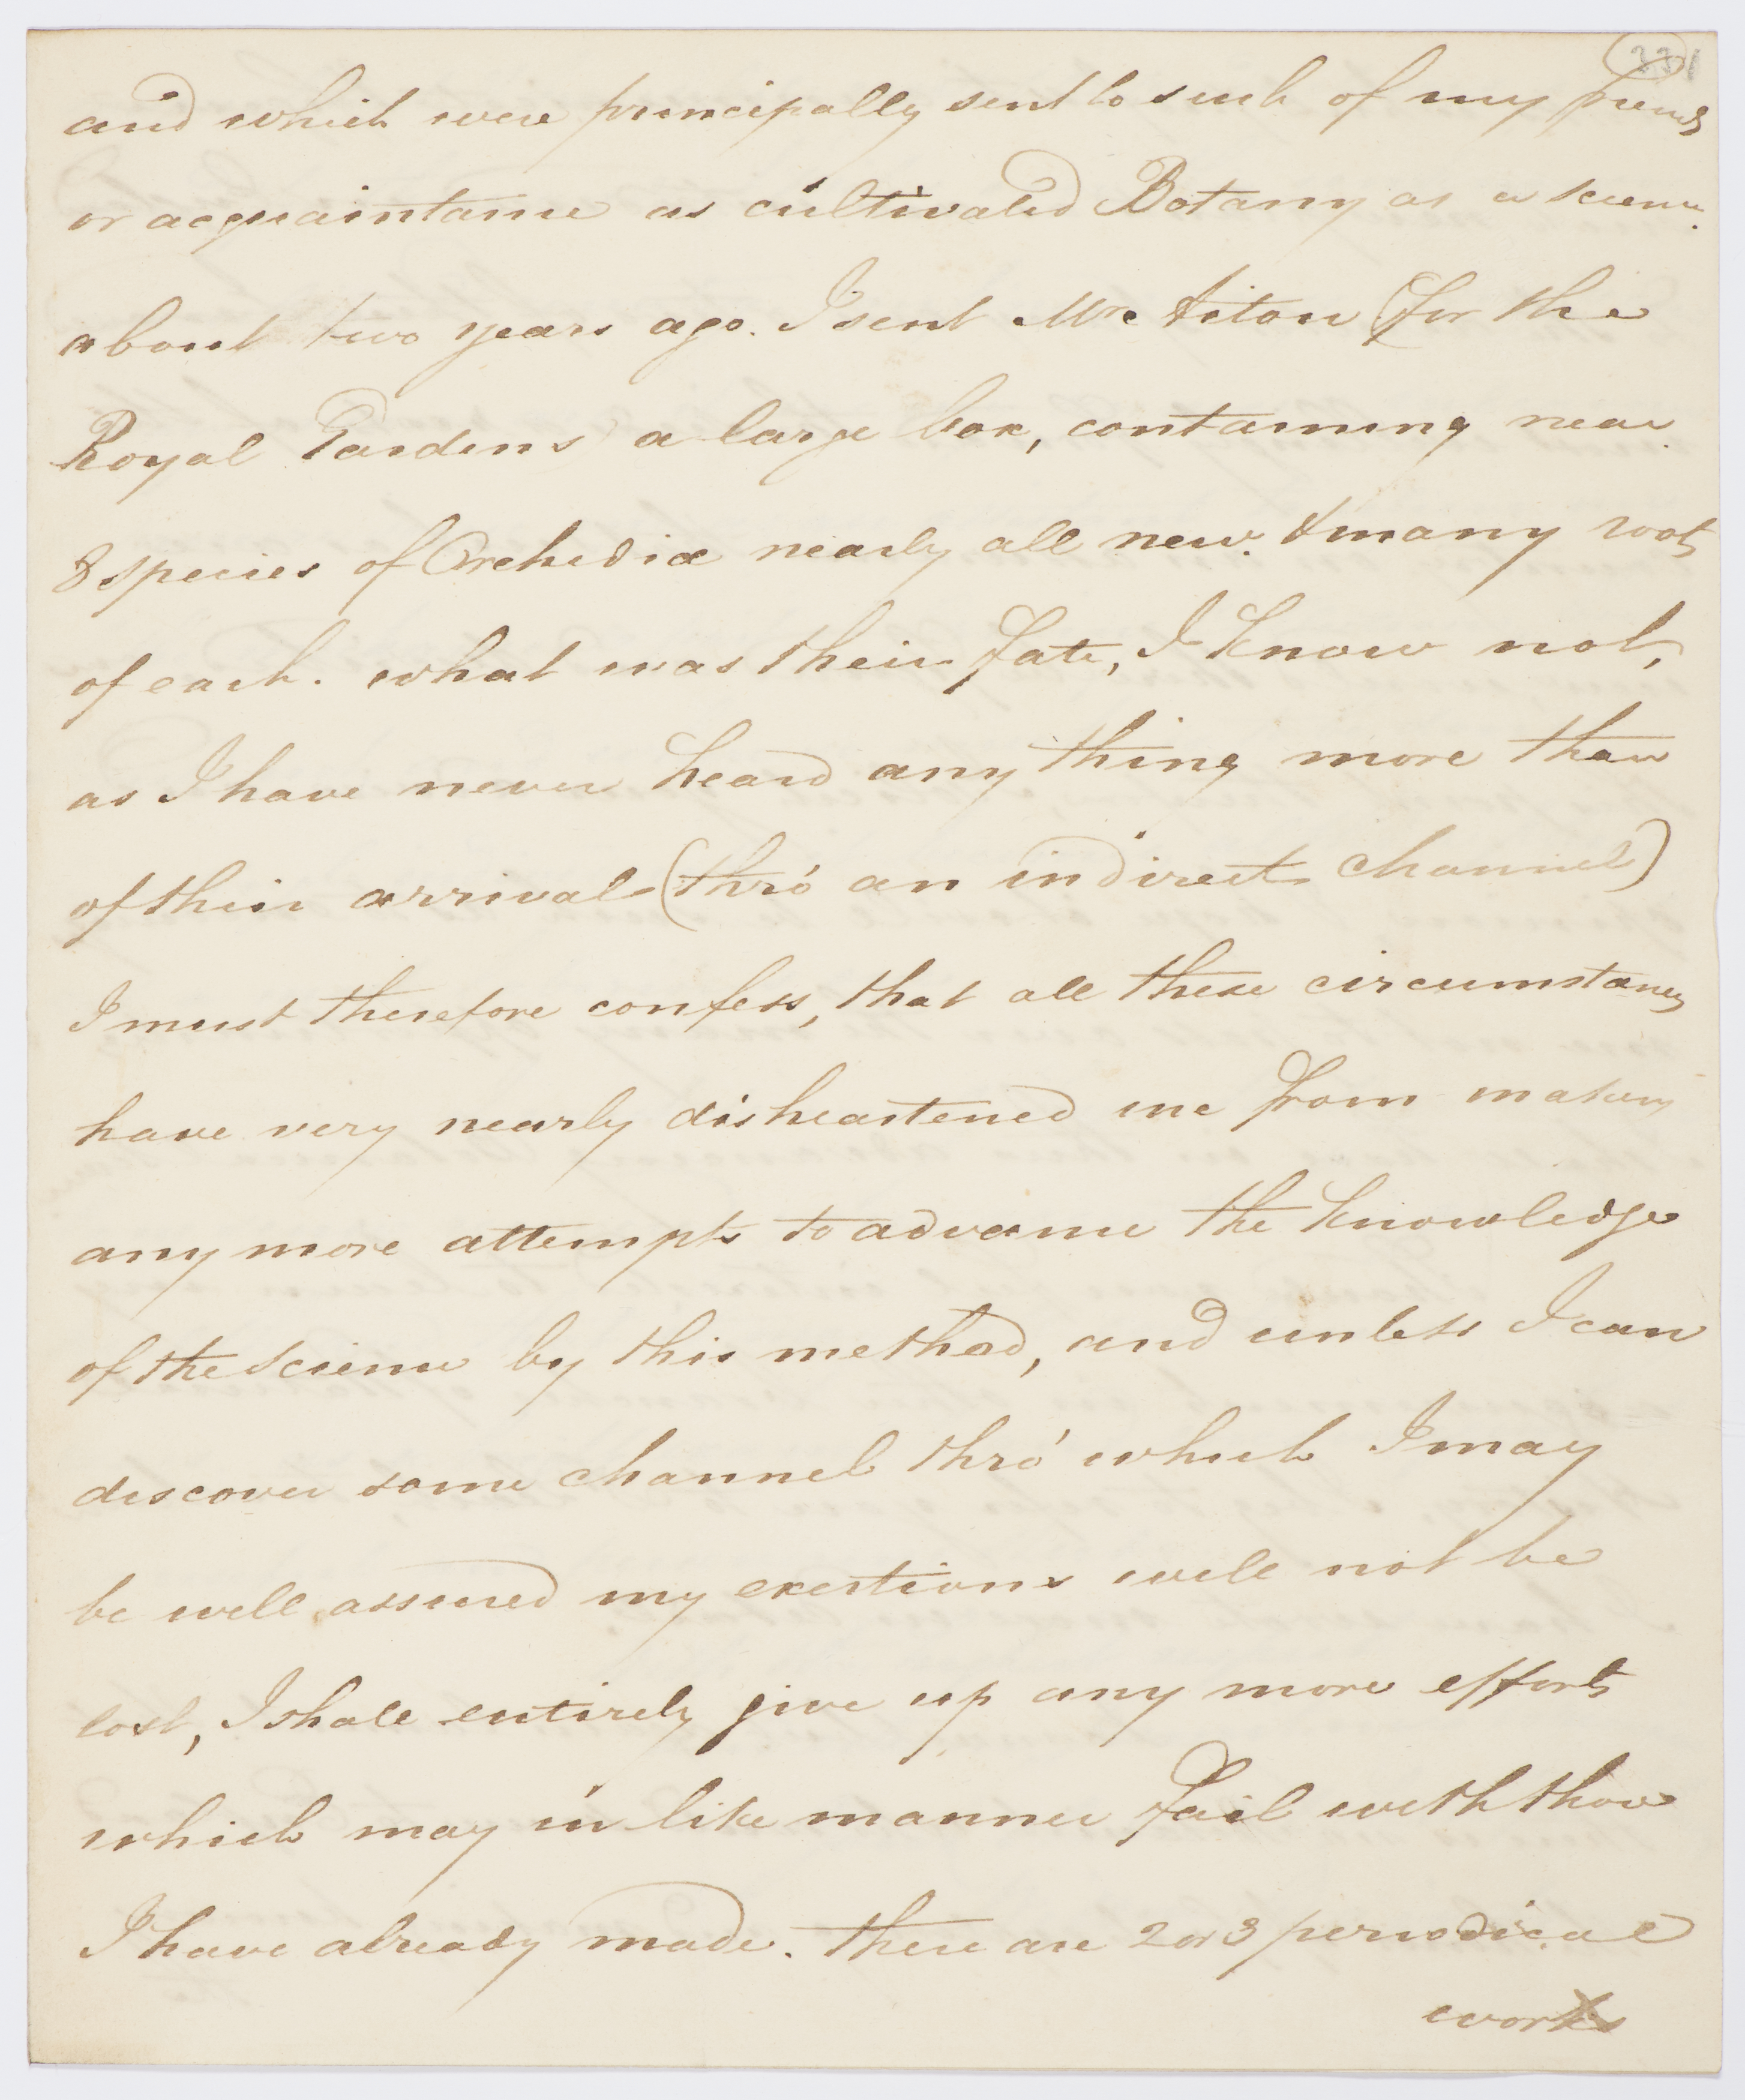 and which were principally sent to such of my friends
or acquaintance as cultivated Botany as a science.
about two years ago. I sent Mr. Aiton (for the
Royal Gardens) a large box, containing near
8 species of Orchidiæ nearly all new. & many roots
of each. what was their fate, I know not,
as I have never heard any thing more than
of their arrival (thro' an indirect channel)
I must therefore confess, that all these circumstances
have very nearly disheartened me from making
any more attempts to advance the knowledge
of the science by this method, and unless I can
discover some channel thro' which I may
be well assured my exertions will not be
lost, I shall entirely give up any more efforts
which may in like manner fail with those
I have already made. there are 2 or 3 periodical
works